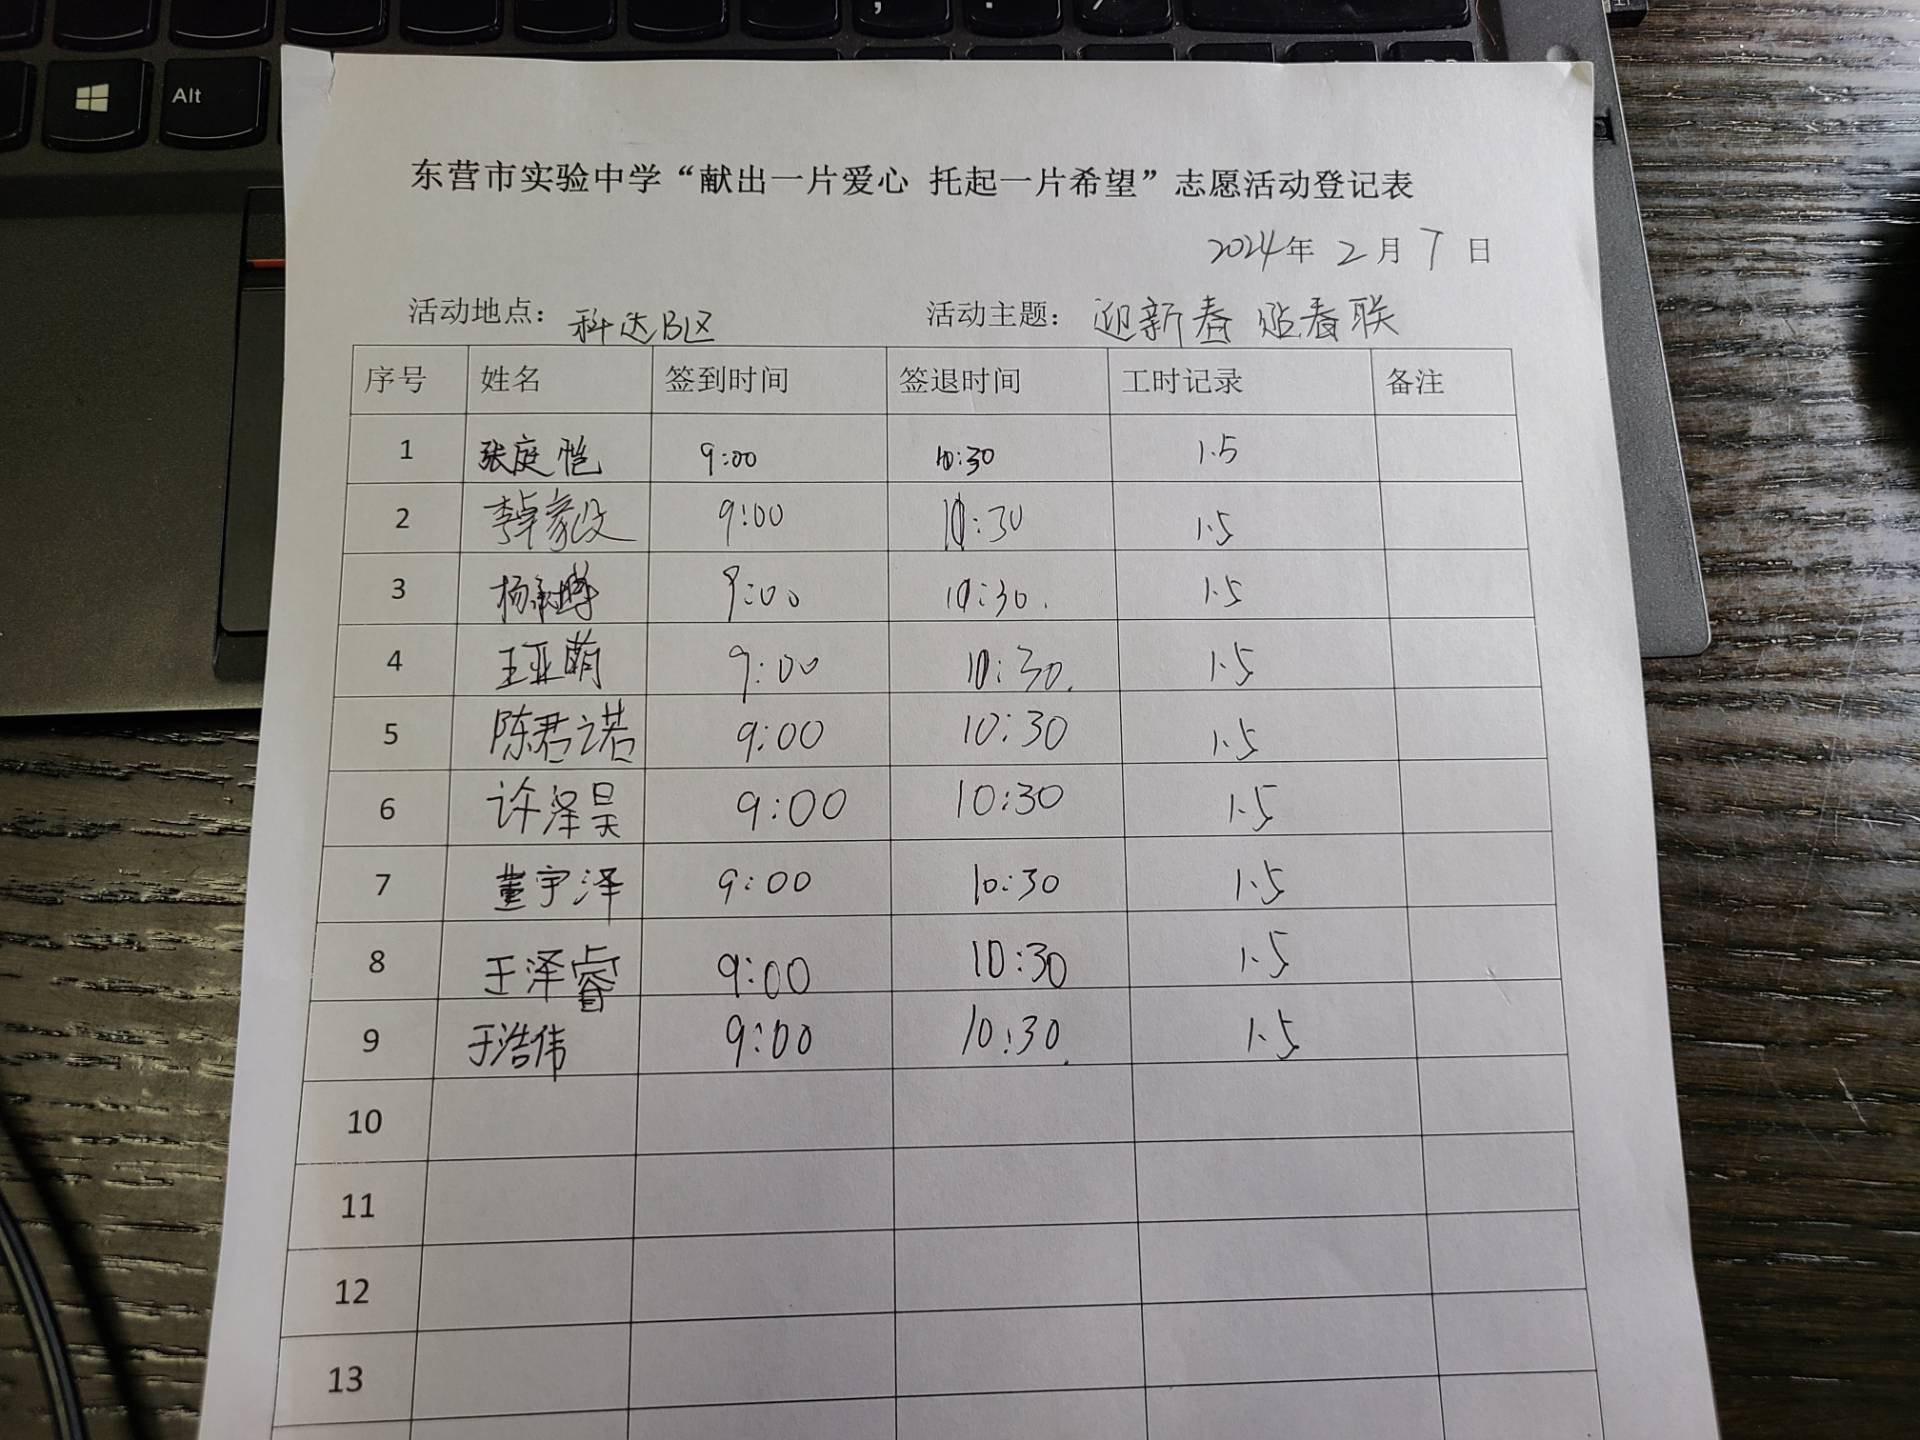 Alt
东营市实验中学“献出一片爱心 托起一片希望”志愿活动登记表
2024年 2 月 7 日
活动地点：科达B区 活动主题：迎新春 贴春联
序号 姓名 签到时间 签退时间 工时记录 备注
1 张庭恺 9:00 10:30 1.5
2 李家毅 9:00 10:30 1.5
3 杨 9:00 10:30. 1.5
4 王亚萌 9:00 10:30. 1.5
5 陈君诺 9:00 10:30 1.5
6 许泽昊 9:00 10:30 1.5
7 董宇泽 9:00 10:30 1.5
8 王泽睿 9:00 10:30 1.5
9 于浩伟 9:00 10:30. 1.5
10
11
12
13